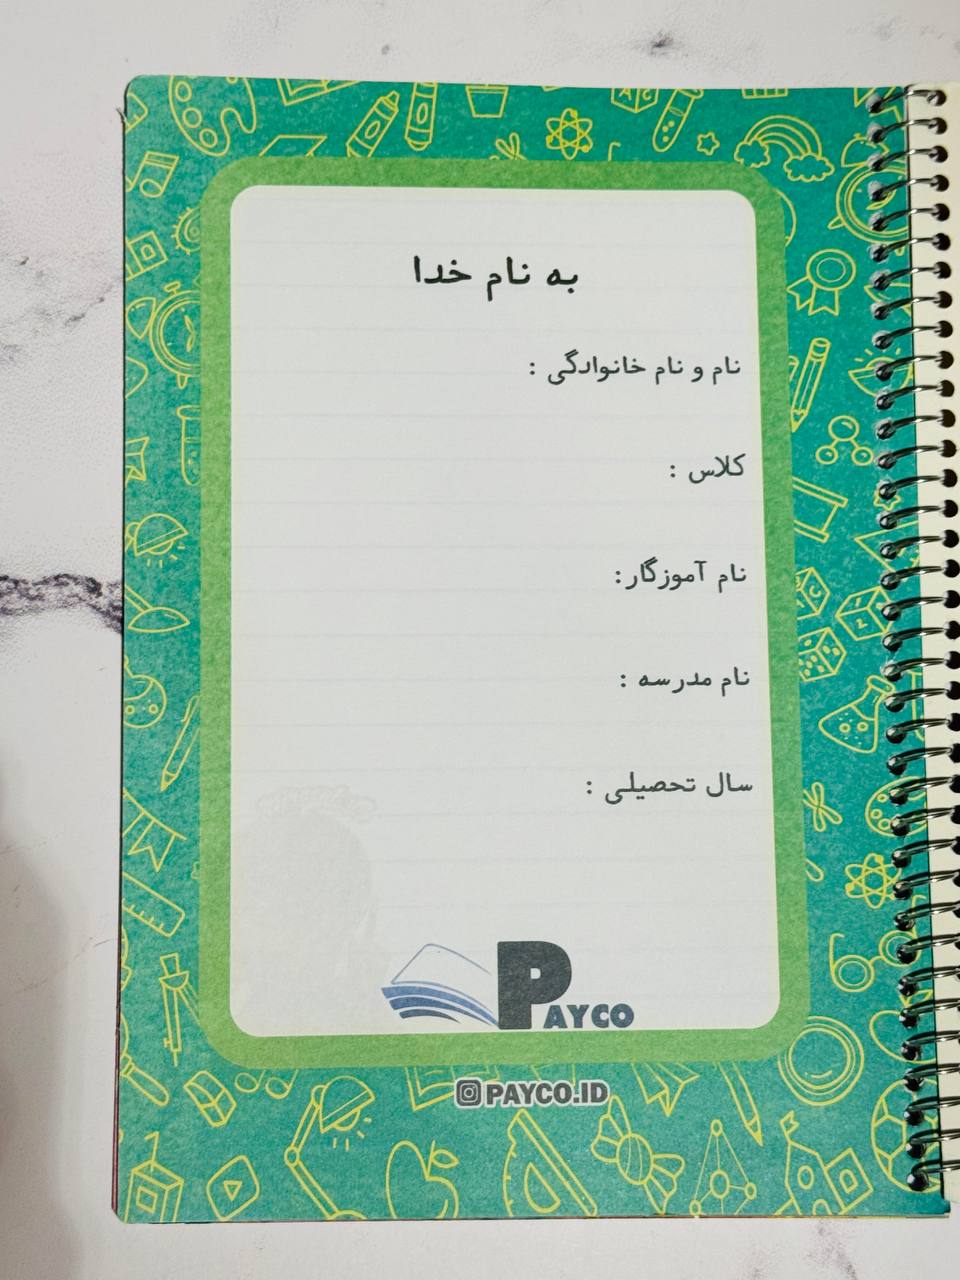 به نام خدا
نام و نام خانوادگی :
کلاس :
نام آموزگار:
نام مدرسه :
سال تحصیلی :
PAYCO
PAYCO.ID